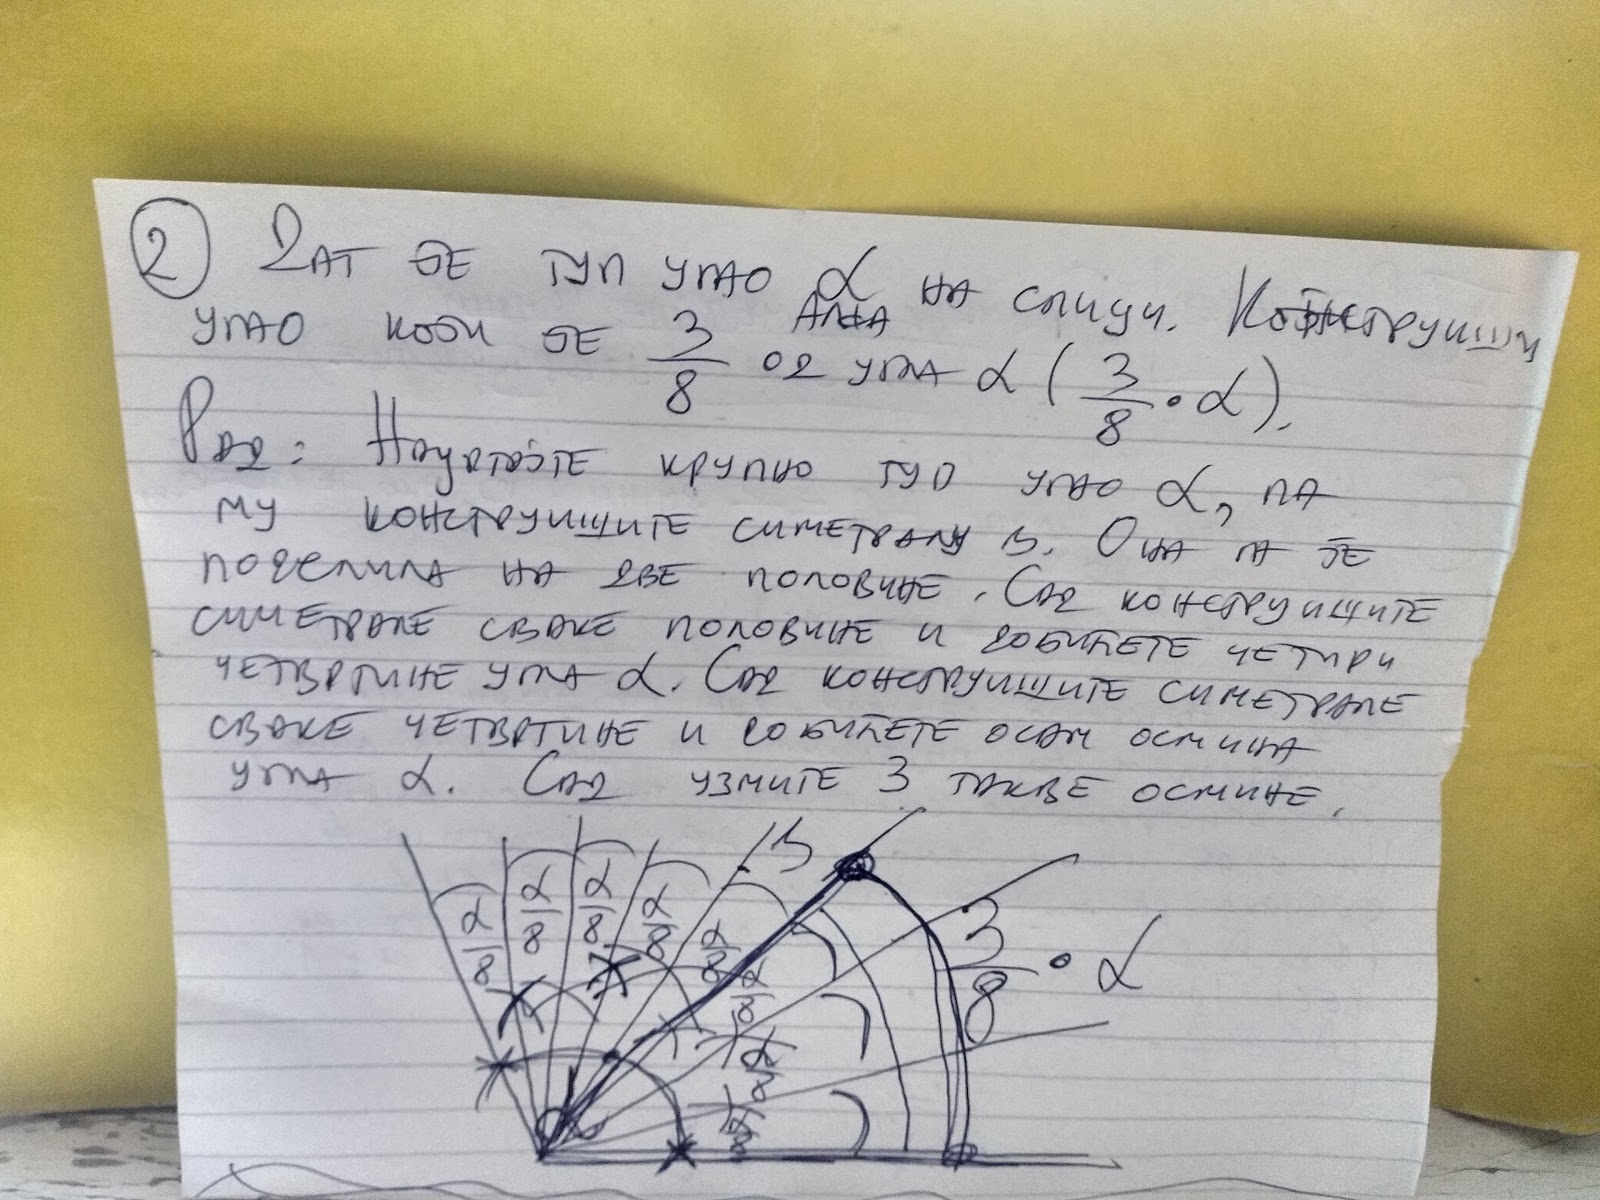 2 Дат је туп угао α на слици. Конструиши
алфа
угао који је 3/8 од угла α (3/8 · α).
Рад: Нацртајте крупно туп угао α, па
му конструишите симетралу s. Она га је
поделила на две половине. Сад конструишите
симетрале сваке половине и добићете четири
четвртине угла α. Сад конструишите симетрале
сваке четвртине и добићете осам осмина
угла α. Сад узмите 3 такве осмине.
s
α/8 α/8 α/8 α/8 α/8 α/8 α/8 α/8
3/8 · α